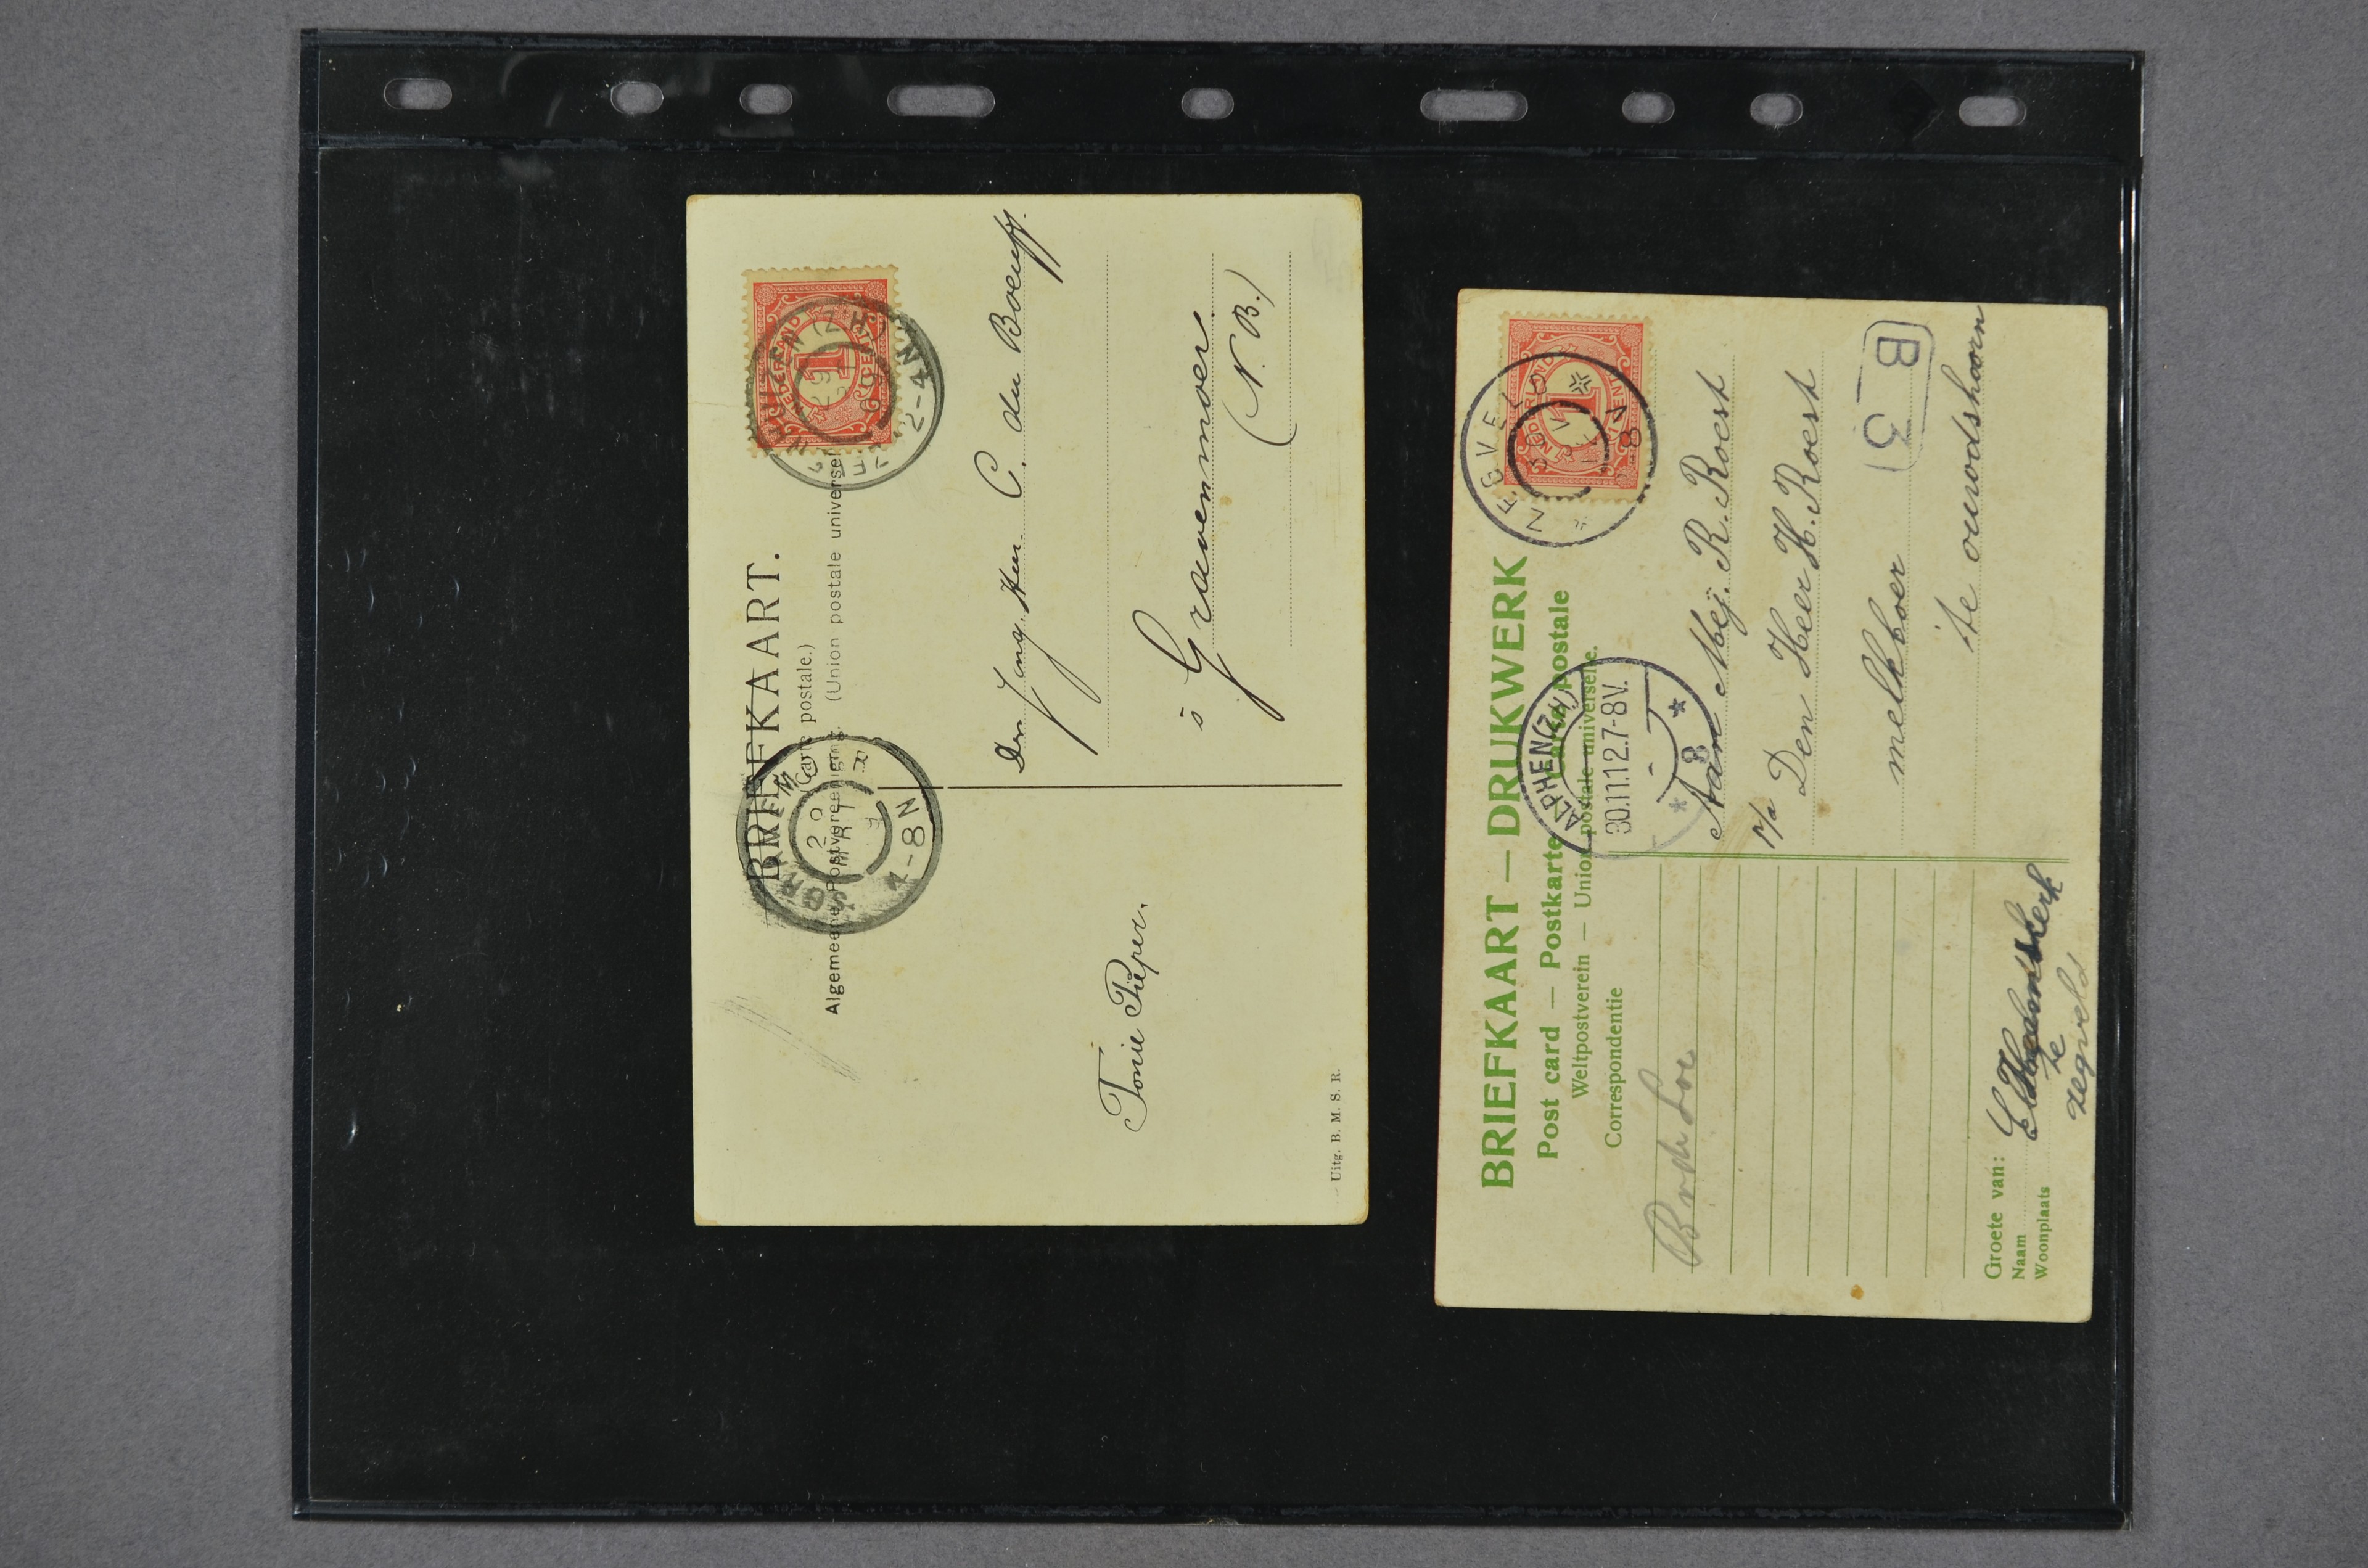 BRIEFKAART.
(Carte postale.)
Algemeene Postvereeniging. (Union postale universel
NEDERLAND
1
CENT
(ZH)
2-4N
29
MRT
4-8N
Den Jong. Heer. C. den
's Gravenmoer.
(N. B.)
Tonie Pieper.
Uitg. B. M. S. R.
BRIEFKAART — DRUKWERK
Post card — Postkarte postale
Weltpostverein — Union postale universelle.
Correspondentie
NEDERLAND
1
CENT
ZEGVELD
8V
ALPHEN(ZH)
30.11.12.7-8V.
B 3
Aan Mej. R. Roest
p/a Den Heer H. Roest
melkboer
te oudshoorn
Groete van:
Naam
te
Woonplaats zegveld